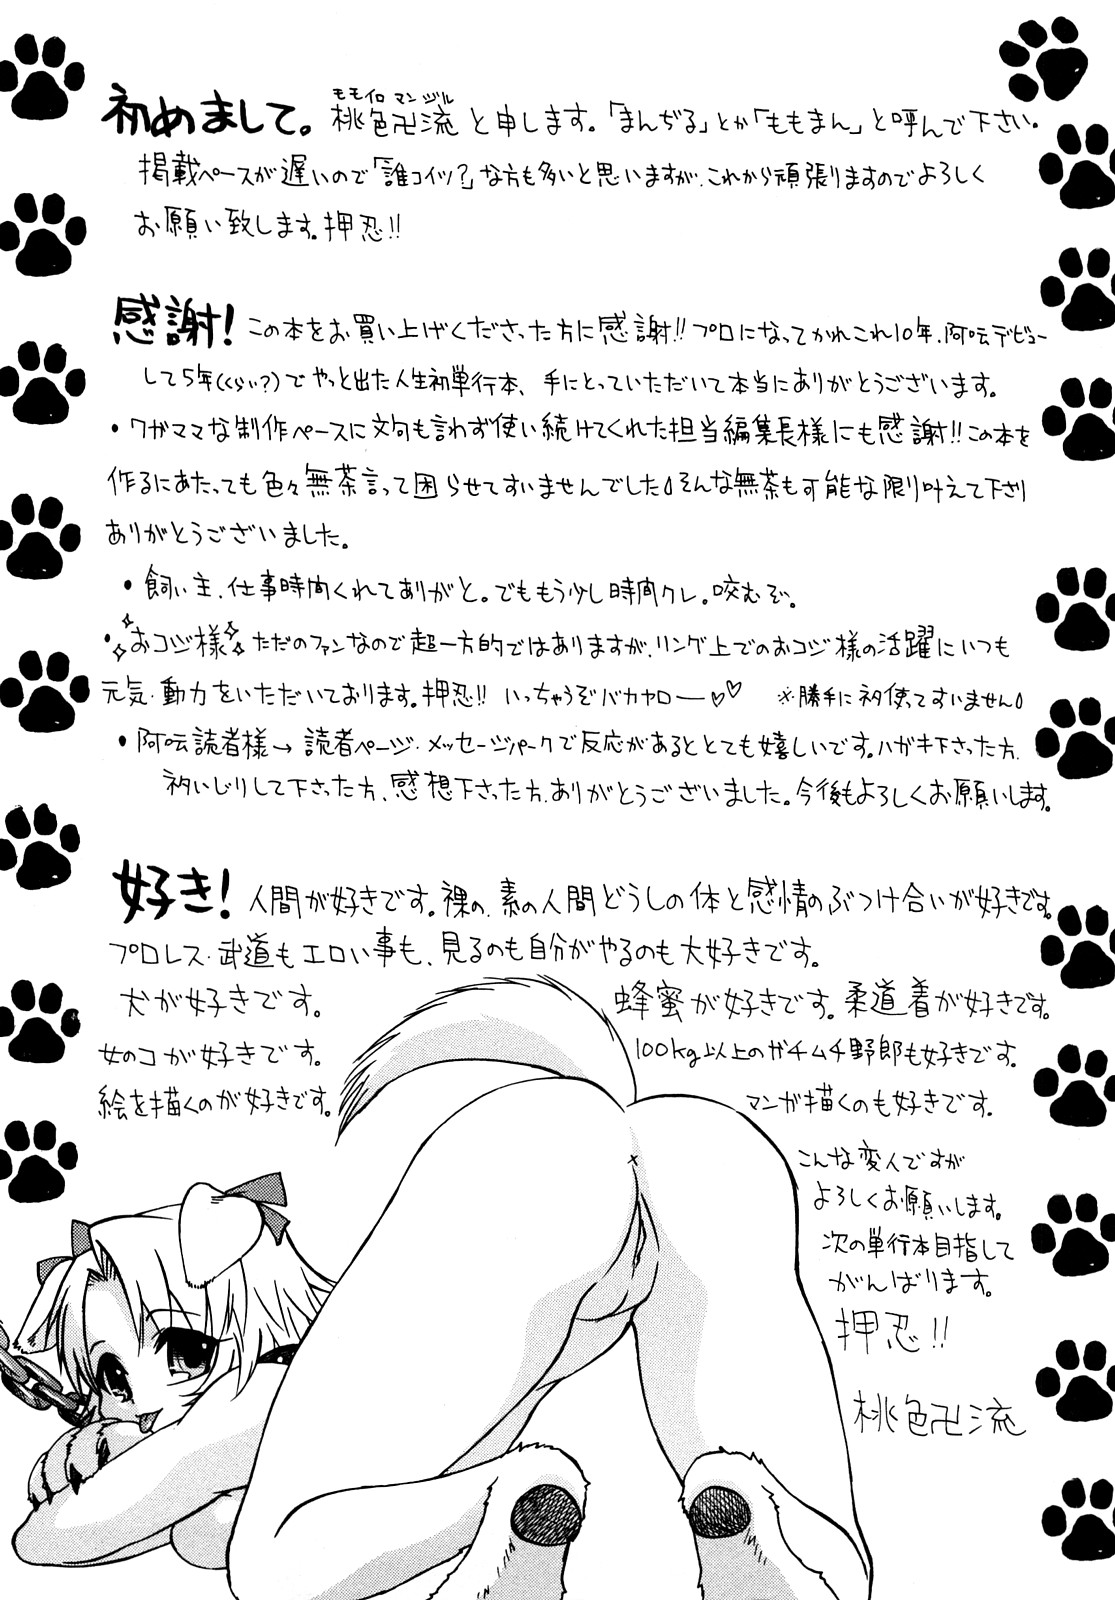 初めまして。桃色卍流と申します。「まんぢる」とか「ももまん」と呼んで下さい。
モモイロ マンジル
掲載ペースが遅いので「誰コイツ?」な方も多いと思いますが、これから頑張りますのでよろしく
お願い致します。押忍!!
感謝!この本をお買い上げくださった方に感謝!!プロになってかれこれ10年、阿吽デビュー
して5年(くらい?)でやっと出た人生初単行本、手にとっていただいて本当にありがとうございます。
・ワガママな制作ペースに文句も言わず使い続けてくれた担当編集長様にも感謝!!この本を
作るにあたっても色々無茶言って困らせてすいませんでした。そんな無茶も可能な限り叶えて下さり
ありがとうございました。
・飼い主、仕事時間くれてありがと。でももう少し時間クレ。咬むぞ。
・おコジ様 ただのファンなので超一方的ではありますが、リング上でのおコジ様の活躍にいつも
元気・動力をいただいております。押忍!!いっちゃうぞバカヤロー♡♡ ※勝手にネタ使ってすいません
・阿吽読者様→読者ページ・メッセージパークで反応があるととても嬉しいです。ハガキ下さった方、
ネタいじりして下さった方、感想下さった方、ありがとうございました。今後もよろしくお願いします。
好き!人間が好きです。裸の、素の人間どうしの体と感情のぶつけ合いが好きです。
プロレス・武道もエロい事も、見るのも自分がやるのも大好きです。
犬が好きです。
女のコが好きです。
絵を描くのが好きです。
蜂蜜が好きです。柔道着が好きです。
100kg以上のガチムチ野郎も好きです。
マンガ描くのも好きです。
こんな変人ですが
よろしくお願いします。
次の単行本目指して
がんばります。
押忍!!
桃色卍流